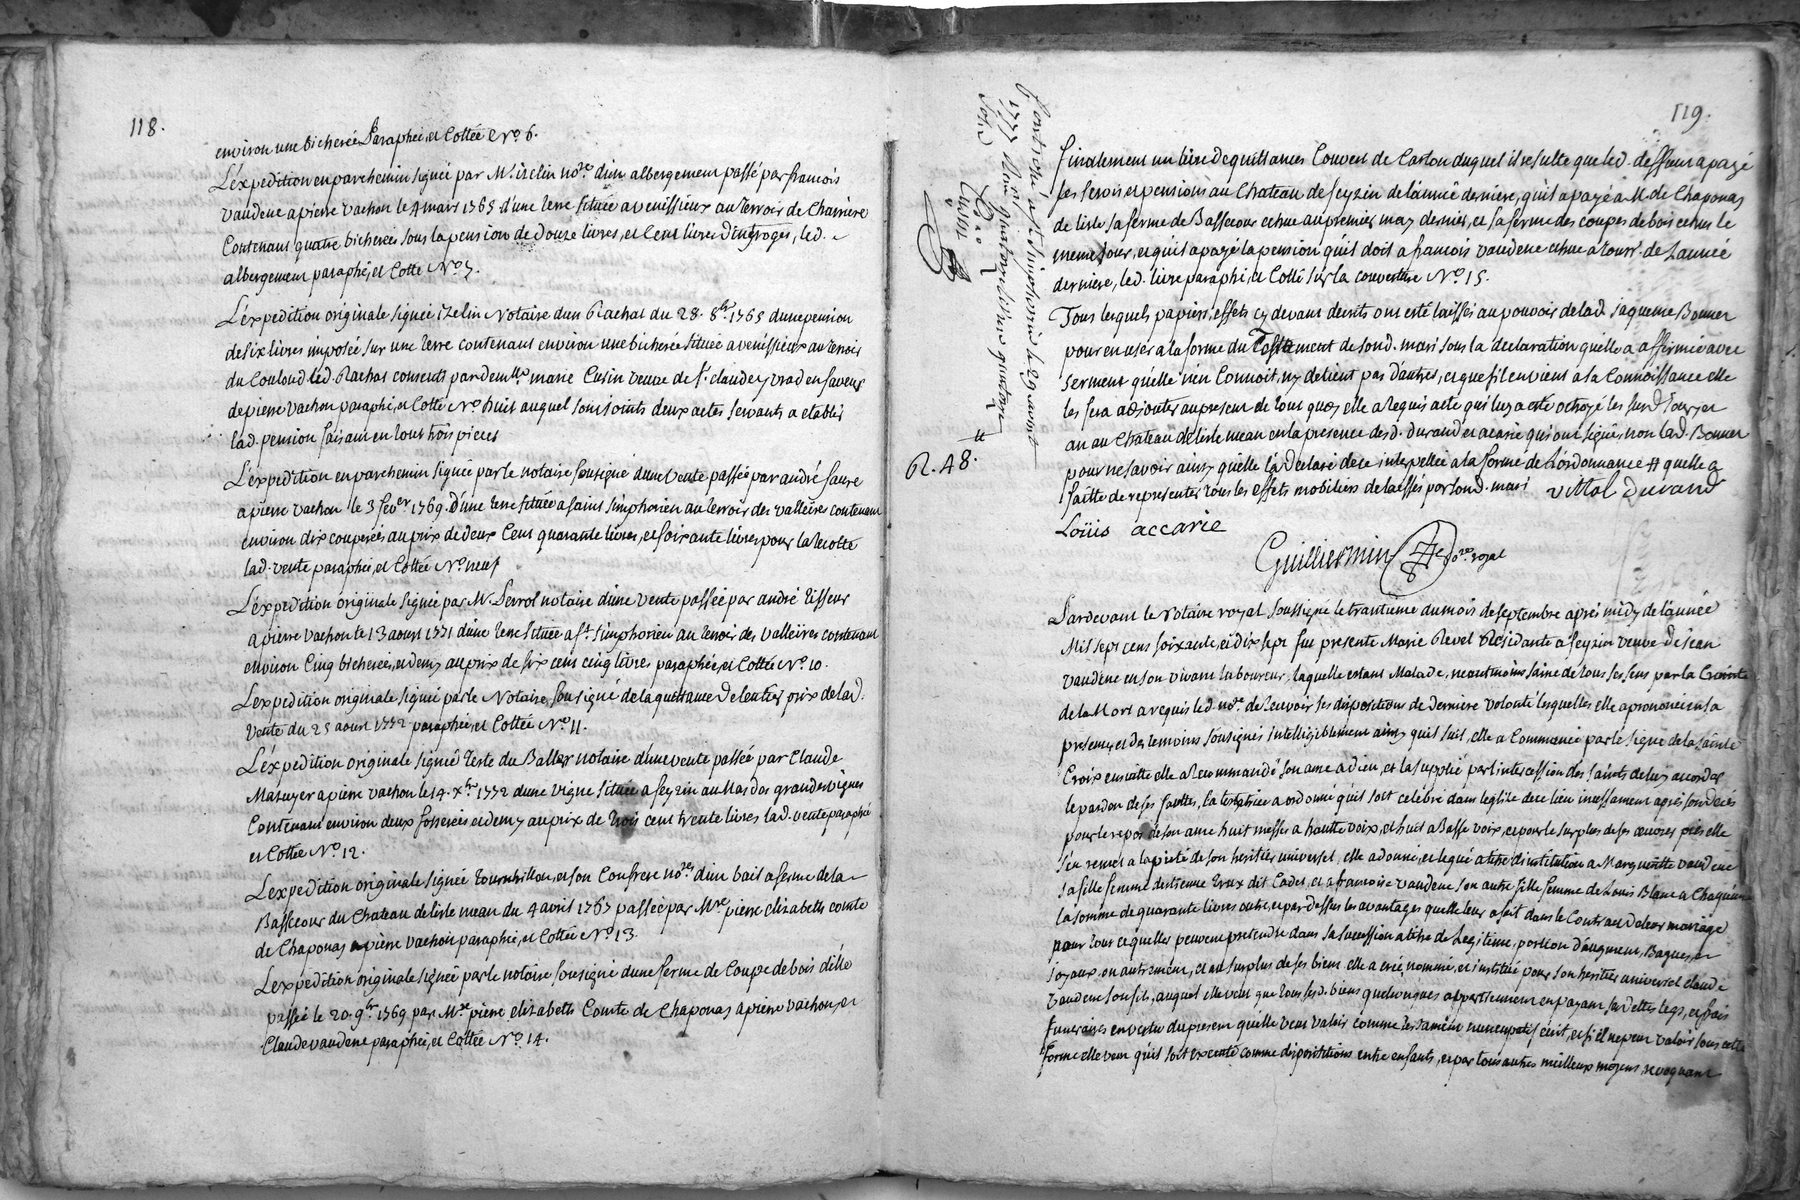 118.
environ une bicherée Paraphée, et Cottée No 6.
L'expedition en parchemin signée par Mr izelin nore d'un albergement passé par françois
vaudene a pierre vachon le 4 mars 1765 d'une terre située a venissieux au terroir de Charriere
Contenant quatre bicherées sous la pension de douze livres, et Cent livres d'introges, led.
albergement paraphé, et Cotté No 7.
L'éxpedition originale signée izelin Notaire d'un Rachat du 28. 8bre 1765 d'une pension
de six livres imposée sur une terre contenant environ une bicherée située a venissieux au terroir
du Couloud led. Rachat consenti par demlle marie Cusin veuve de Sr claude yvrad en faveur
de pierre vachon paraphé, et Cotté No huit auquel sont joints deux actes servants a etablir
lad. pension faisant en tout trois pieces
L'éxpedition en parchemin signée par le notaire soussigné d'une vente passée par andré faure
a pierre vachon le 3 fever 1769. d'une terre située a saint simphorien au terroir des valleires contenant
environ dix couperées au prix de deux Cent quarante livres, et soixante livres pour la recolte
lad. vente paraphée, et Cottée No neuf
L'éxpedition originale signée par Mr notaire d'une vente passée par andré tisseur
a pierre vachon le 13 aoust 1771 d'une terre située a St simphorien au terroir des valleires contenant
environ Cinq bicherées, et demy au prix de six cent cinq livres paraphée, et Cottée No 10.
L'expedition originale signée par le Notaire soussigné de la quittance de l'entier prix de lad.
vente du 25 aoust 1772 paraphée, et Cottée No 11.
L'éxpedition originale signée teste du Baller notaire d'une vente passée par Claude
Mazuyer a pierre vachon le 14. xbre 1772 d'une vigne située a feyzin au Mas des grandes vignes
Contenant environ deux fosserées et demy au prix de trois cent trente livres lad. vente paraphée
et Cottée No 12.
L'expedition originale signée tournillon, et son Confrere nores d'un bail a ferme de la
Bassecour du Chateau de l'isle mean du 4 avril 1767 passée par Mre pierre elizabeth comte
de Chaponay a pierre vachon paraphé, et Cottée No 13.
L'expedition originale signée par le notaire soussigné d'une ferme de Coupe de bois d'ille
passée le 20. 9bre 1769 par Mre pierre elizabeth Comte de Chaponay a pierre vachon, et
Claude vaudene paraphée, et Cottée No 14.
119.
finalement un livre de quittances Couvert de Carton duquel il resulte que led. deffunt a payé
les servis et pensions au Chateau de feyzin de l'année derniere, qu'il a payé a M. de Chaponay
de l'isle sa ferme de Bassecour echue au premier may dernier, et sa ferme des coupes de bois echues le
meme jour, et qu'il a payé la pension qu'il doit a francois vaudene echue a touss. de l'année
derniere, led. livre paraphé, et Cotté sur la couverture No 15.
Tous lesquels papiers, effets cy devant decrits ont esté laissés au pouvoir de lad. jaqueme Bonner
pour en user a la forme du Testament de fond. mari sous la declaration qu'elle a affirmée avec
serment qu'elle n'en Connoit, ny detient pas d'autres, et que s'il en vient a sa Connoissance elle
les fera adjouter au present de tout quoy elle a requis acte qui luy a esté octroyé les susd. jour et
an au Chateau de l'isle mean en la presence desd. durand et acarie qui ont signés non lad. Bonner
pour ne savoir ainsy qu'elle l'a declaré de ce interpellée a la forme de l'ordonnance # quelle a
faitte de representer tous les effets mobiliers delaissés par fond. mari vittal durand
Loüis accarie
Guilliermin nore royal
R. 48.
Controllé a St simphorien
1777
Pardevant le Notaire royal soussigné le trantieme du mois de septembre aprés midy de l'année
Mil sept cens soixante, et dix sept fut presente Marie Revel Residante a feyzin veuve de jean
vaudene en son vivant laboureur, laquelle estant Malade, neantmoins saine de tous ses sens par la Crainte
de la Mort a requis led. nore. de recevoir ses dispositions de derniere volonté lesquelles elle a prononcé en sa
presence, et des temoins soussignés intelligiblement ainsy qu'il suit, elle a Commencé par le signe de la sainte
Croix ensuitte elle a recommandé son ame a dieu, et la supplié par l'intercession des saints de luy accorder
le pardon de ses fauttes, la testatrice a ordonné qu'il soit celebré dans l'eglise de ce lieu incessament aprés son decés
pour le repos de son ame huit messes a hautte voix, et huit a Basse voix, et pour le surplus de ses œuvres pies elle
s'en remet a la pieté de son heritier universel, elle a donné, et legué a titre d'institution a Margueritte vaudene
sa fille femme d'estienne Roux dit Cadet, et a francoise vaudene son autre fille femme de Louis Blanc a Chaqu'une
la somme de quarante livres outre, et par dessus les avantages qu'elle leur a fait dans le Contract de leur mariage
pour tout ce qu'elles peuvent pretendre dans sa succession a titre de Legitime, portion d'augment, Bagues, et
joyaux, ou autrement, et au surplus de ses biens elle a créé, nommé, et institué pour son heritier universel claude
vaudene son fils, auquel elle veut que tous sesd. biens quelconques appartiennent en payant ses dettes legs, et frais
funeraires en vertu du present qu'elle veut valoir comme testament nuncupatif ecrit, et s'il ne peut valoir sous cette
forme elle veut qu'il soit executé comme dispositions entre enfants, et par tous autres meilleurs moyens, revoquant